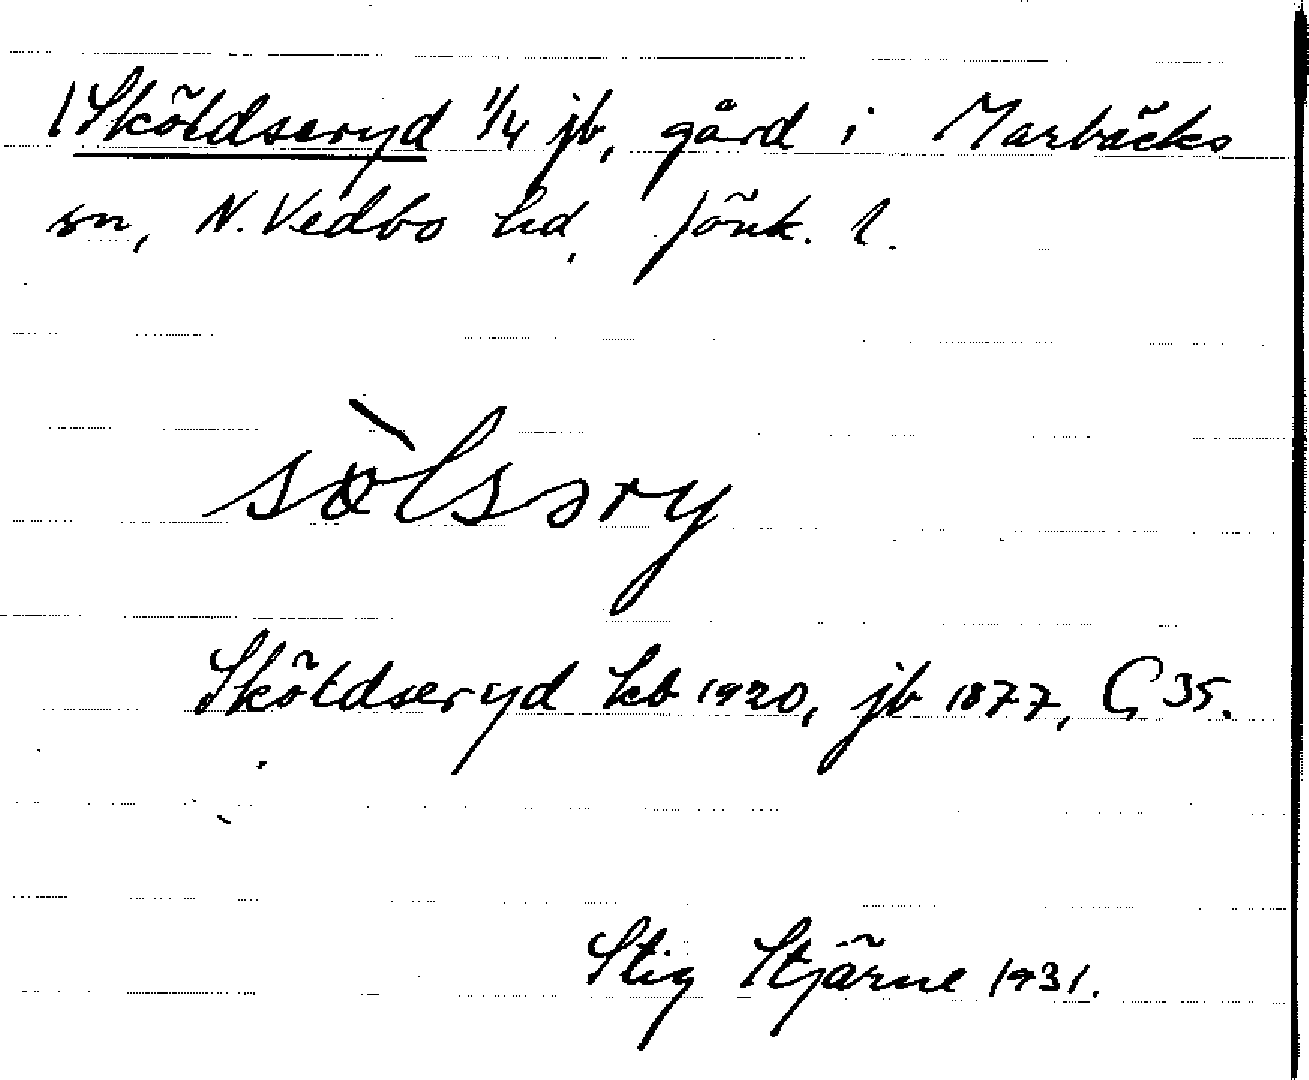 /Sköldseryd 1/4 jb, gård i Marbäcks
sn, N. Vedbo hd, Jönk. l.
sø̀lsəry
Sköldseryd kb 1920, jb 1877, G 35.
Stig Stjärne 1931.